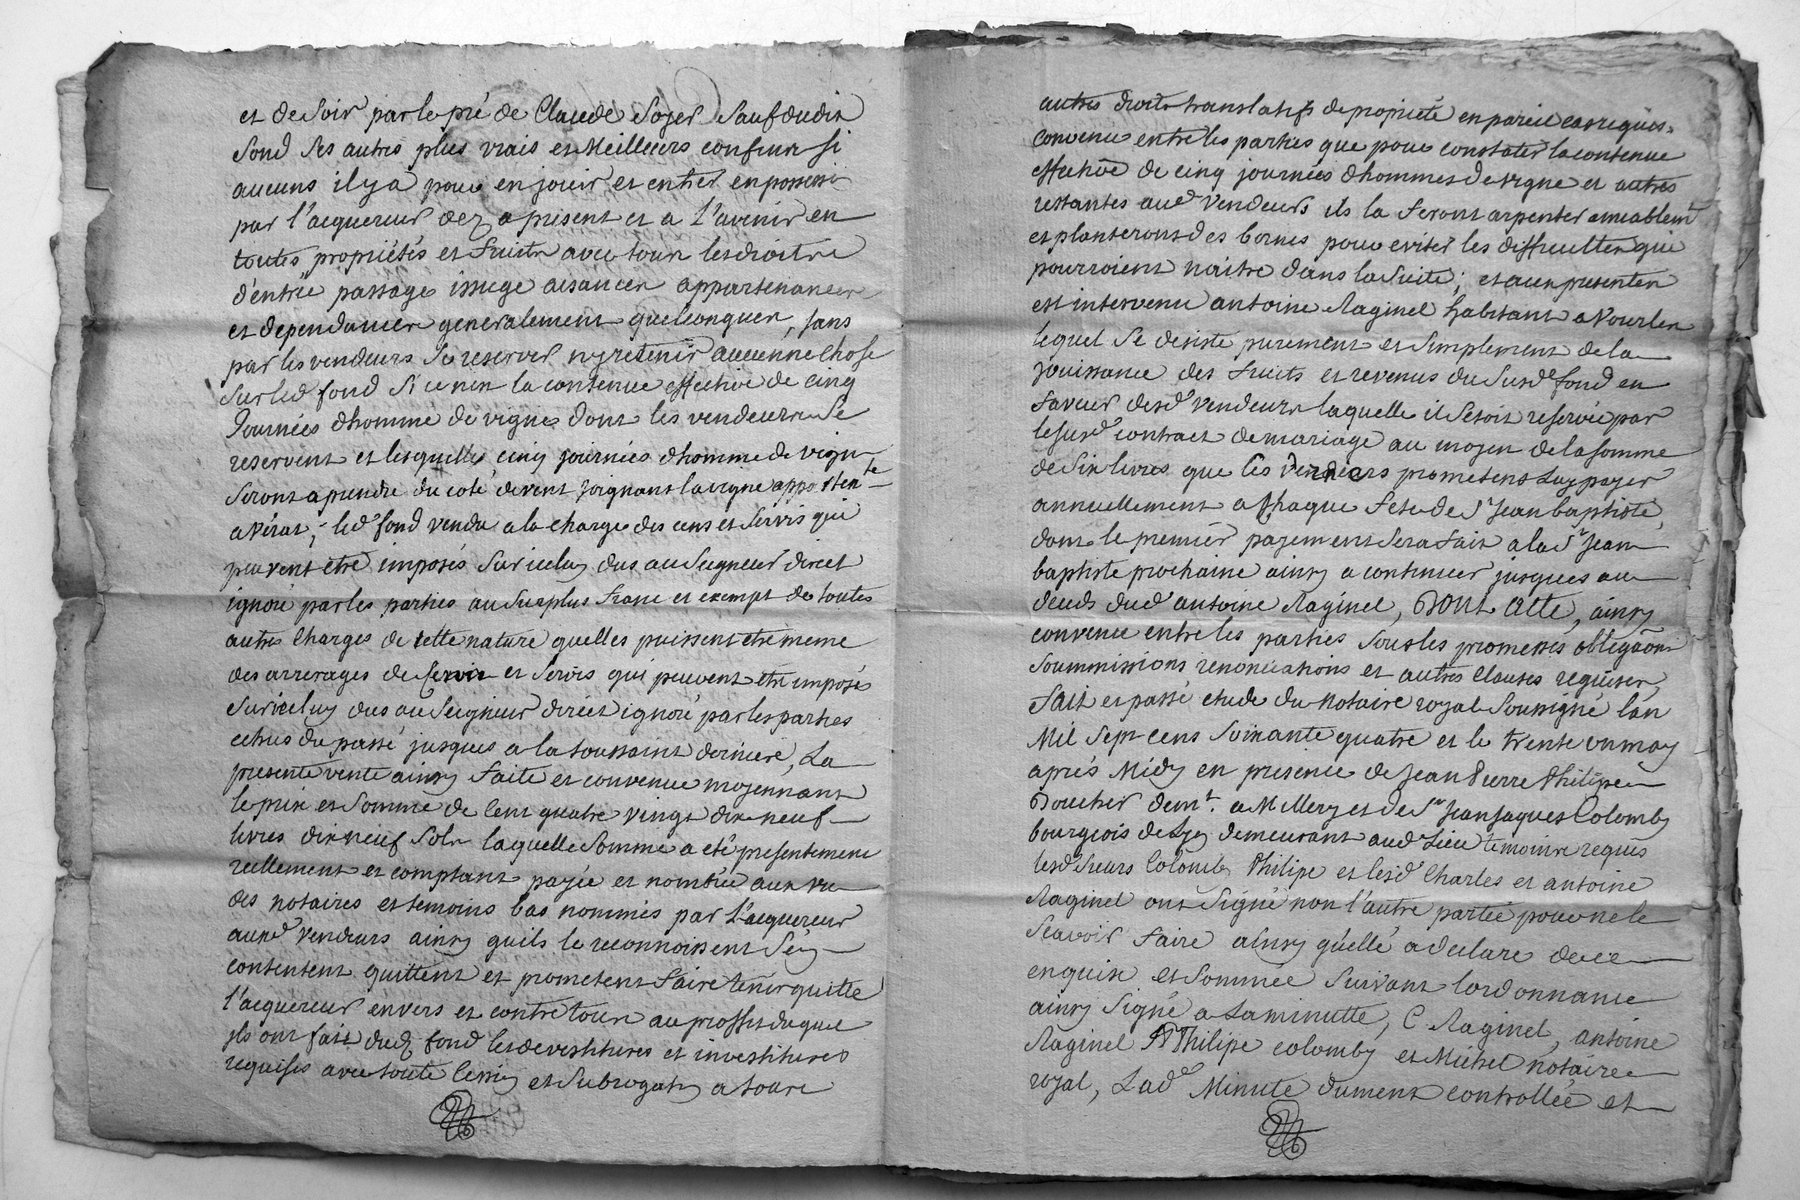 et de soir par le pré de Claude Soyer Sauf dudit
fond ses autres plus vrais et Meilleurs confins si
aucuns il y a pour en jouir et entrer en possession
par l'acquereur dez a present et a l'avenir en
toutes propriétés et fruits avec tous les droits
d'entrée passage issuge aisances appartenances
et dependances generalement quelconques, sans
par les vendeurs se reserver ny retenir aucunne chose
sur led fond Si ce nen la contenue effective de cinq
Journées d'homme de vigne dont les vendeurs se
reservent et lesquelles cinq journées d'homme de vigne
seront a prendre du coté de vent joignant la vigne apportente
a Pérat; led fond vendu a la charge des cens et servis qui
peuvent etre imposés sur iceluy dus au seigneur direct
ignoré par les parties au surplus franc et exempt de toutes
autres charges de cette nature quelles puissent etre meme
des arrerages de Cervis et servis qui peuvent etre imposés
sur iceluy dus au seigneur direct ignoré par les parties
echus du passé jusques a la toussaint derniere, La
presente vente ainsy faite et convenue moyennant
le prix et somme de cent quatre vingt dix neuf
livres dix neuf sols laquelle somme a eté presentement
reellement et comptant payée et nombrée aux vu
des notaires et temoins bas nommés par l'acquereur
auxd vendeurs ainsy quils le reconnoissent s'en
contentent quittent et prometent faire tenir quitte
l'acquereur envers et contre tous au proffit duquel
ils ont fait dud fond les devestitures et investitures
requises avec toute cession et subrogation a tous
autres droits translatifs de proprieté en pareil cas requis.
convenu entre les parties que pour constater la contenue
effective de cinq journées d'hommes de vigne et autres
restantes aud vendeurs ils la feront arpenter amiablemt
et planteront des bornes pour eviter les difficultes qui
pourroient naitre dans la suite; et aux presentes
est intervenu antoine Raginel habitant a Vourles
lequel se desiste purement et simplement de la
jouissance des fruits et revenus du susd fond en
faveur desd vendeurs laquelle il setoit reservée par
le susd contract de mariage au moyen de la somme
de six livres que les vendeurs prometent luy payer
annuellement a chaque fete de St Jean baptiste,
dont le premier payement sera fait a la St Jean
baptiste prochaine ainsy a continuer jusques au
deceds dud antoine Raginel, Dont Atte, ainsy
convenu entre les parties sous les promesses obligaõns
soummissions renonciations et autres clauses requises,
fait et passé etude du notaire royal soussigné lan
Mil sept cens soixante quatre et le trente un may
aprés Midy en presence de Jean Pierre Philipe
Boucher demt. a Millery et de Sr Jean Jaques Colomby
bourgeois de Lyon demeurant aud Lieu temoins requis
lesd sieurs Colomby Philipe et lesd Charles et antoine
Raginel ont signé non l'autre partie pour ne le
scavoir faire ainsy qu'elle a declaré de ce
enquise et sommée suivant lordonnance
ainsy signé a la minutte, C Raginel, antoine
Raginel Philipe colomby et Michel notaire
royal, Lade Minute dument controllée et